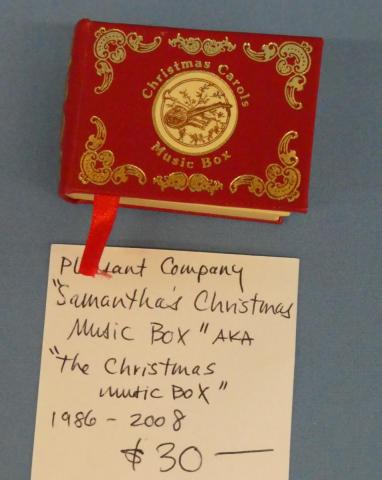 Christmas Carols
Music Box
Pleasant Company
"Samantha's Christmas
Music Box" AKA
"The Christmas
music Box"
1986 - 2008
$30 —